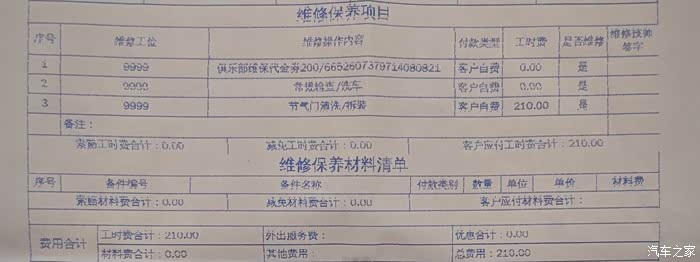 维修保养项目
序号 维修工位 维修操作内容 付款类型 工时费 是否维修 维修技师签字
1 9999 俱乐部维保代金券200/6652607379714080821 客户自费 0.00 是
2 9999 常规检查/洗车 客户自费 0.00 是
3 9999 节气门清洗/拆装 客户自费 210.00 是
备注：
索赔工时费合计：0.00 减免工时费合计：0.00 客户应付工时费合计：210.00
维修保养材料清单
序号 备件编号 备件名称 付款类别 数量 单位 单价 材料费
索赔材料费合计：0.00 减免材料费合计：0.00 客户应付材料费合计：
费用合计 工时费合计：210.00 外出服务费： 优惠合计：0.00
材料费合计：0.00 其他费用： 总费用：210.00
汽车之家